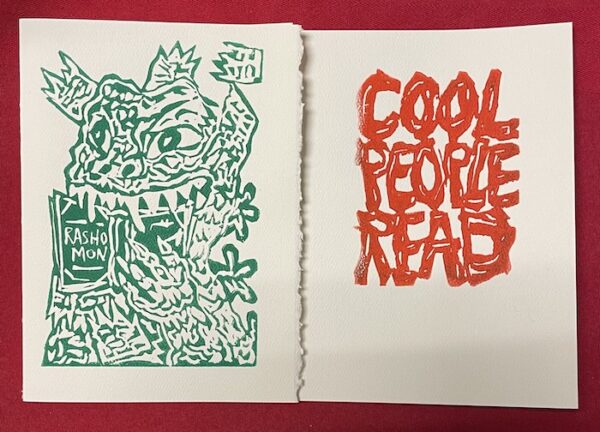 RASHO
MON
COOL
PEOPLE
READ